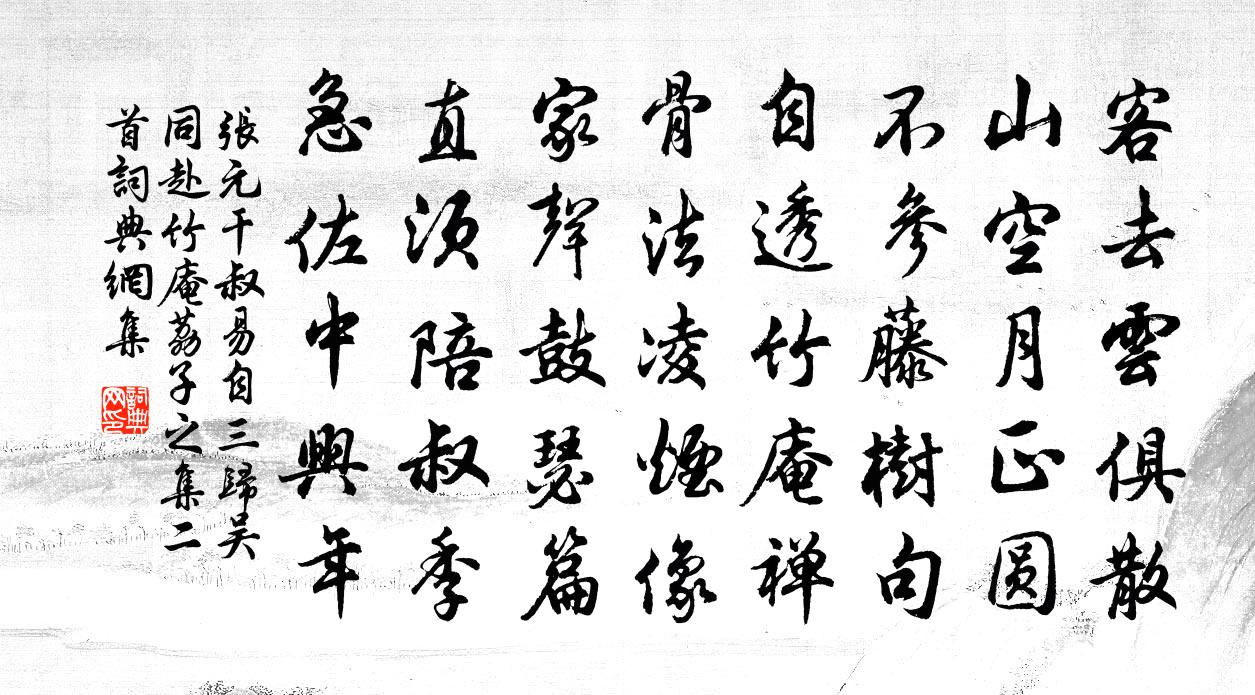 客去雲俱散
山空月正圓
不參藤樹句
自透竹庵禅
骨法凌煙像
家聲鼓瑟篇
直須陪叔季
急佐中興年
張元干叔易自三歸吴
同赴竹庵荔子之集二
首詞典網集
詞典
网印